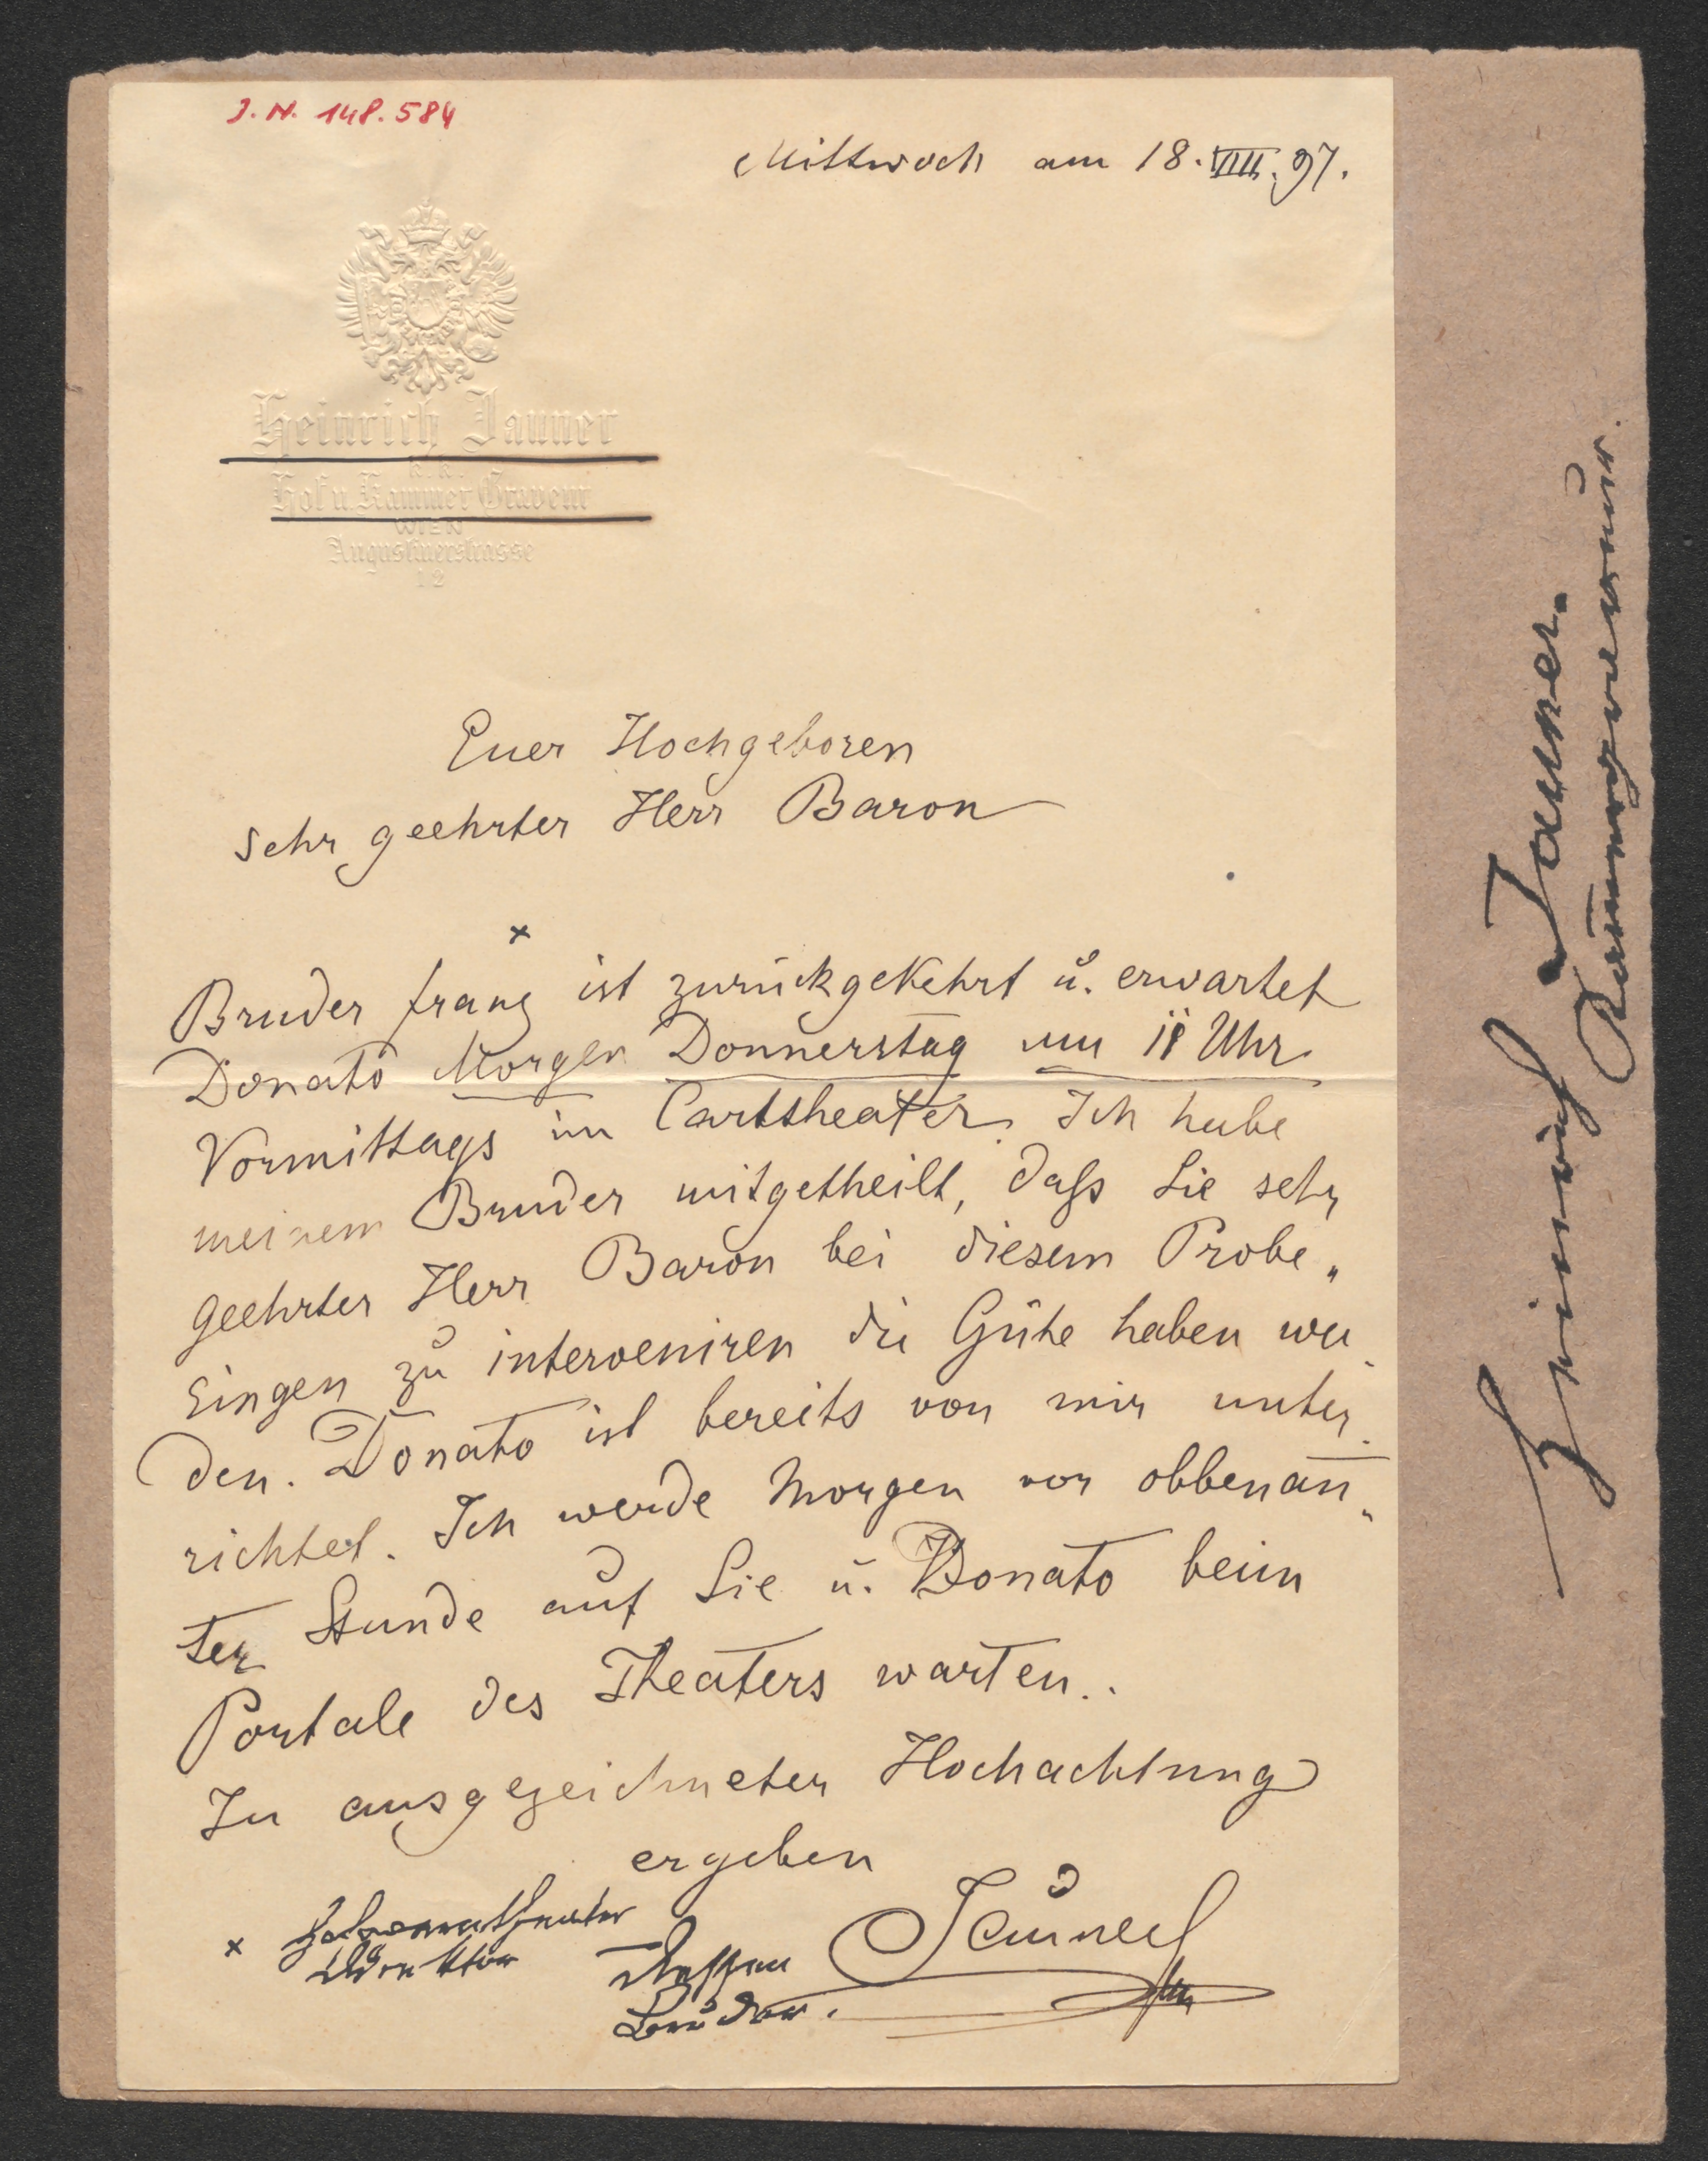 J. N. 148.584
Mittwoch am 18. VIII. 97.
Heinrich Jauner
k. k.
Hof u. Kammer Graveur
WIEN
Augustinerstrasse
12
Euer Hochgeboren
sehr geehrter Herr Baron
×
Bruder franz ist zurückgekehrt u. erwartet
Donato Morgen Donnerstag um 11 Uhr
Vormittags im Carltheater. Ich habe
meinem Bruder mitgetheilt, daß Sie sehr
geehrter Herr Baron bei diesem Probe„
singen zu interveniren die Güte haben wer
den. Donato ist bereits von mir unter
richtet. Ich werde Morgen vor obbenan̄„
ter Stunde auf Sie u. Donato beim
Portale des Theaters warten..
In ausgezeichneter Hochachtung
ergeben
Jauner
×
Direktor
dessen
Bruder.
Heinrich Jauner.
Kammergraveur.